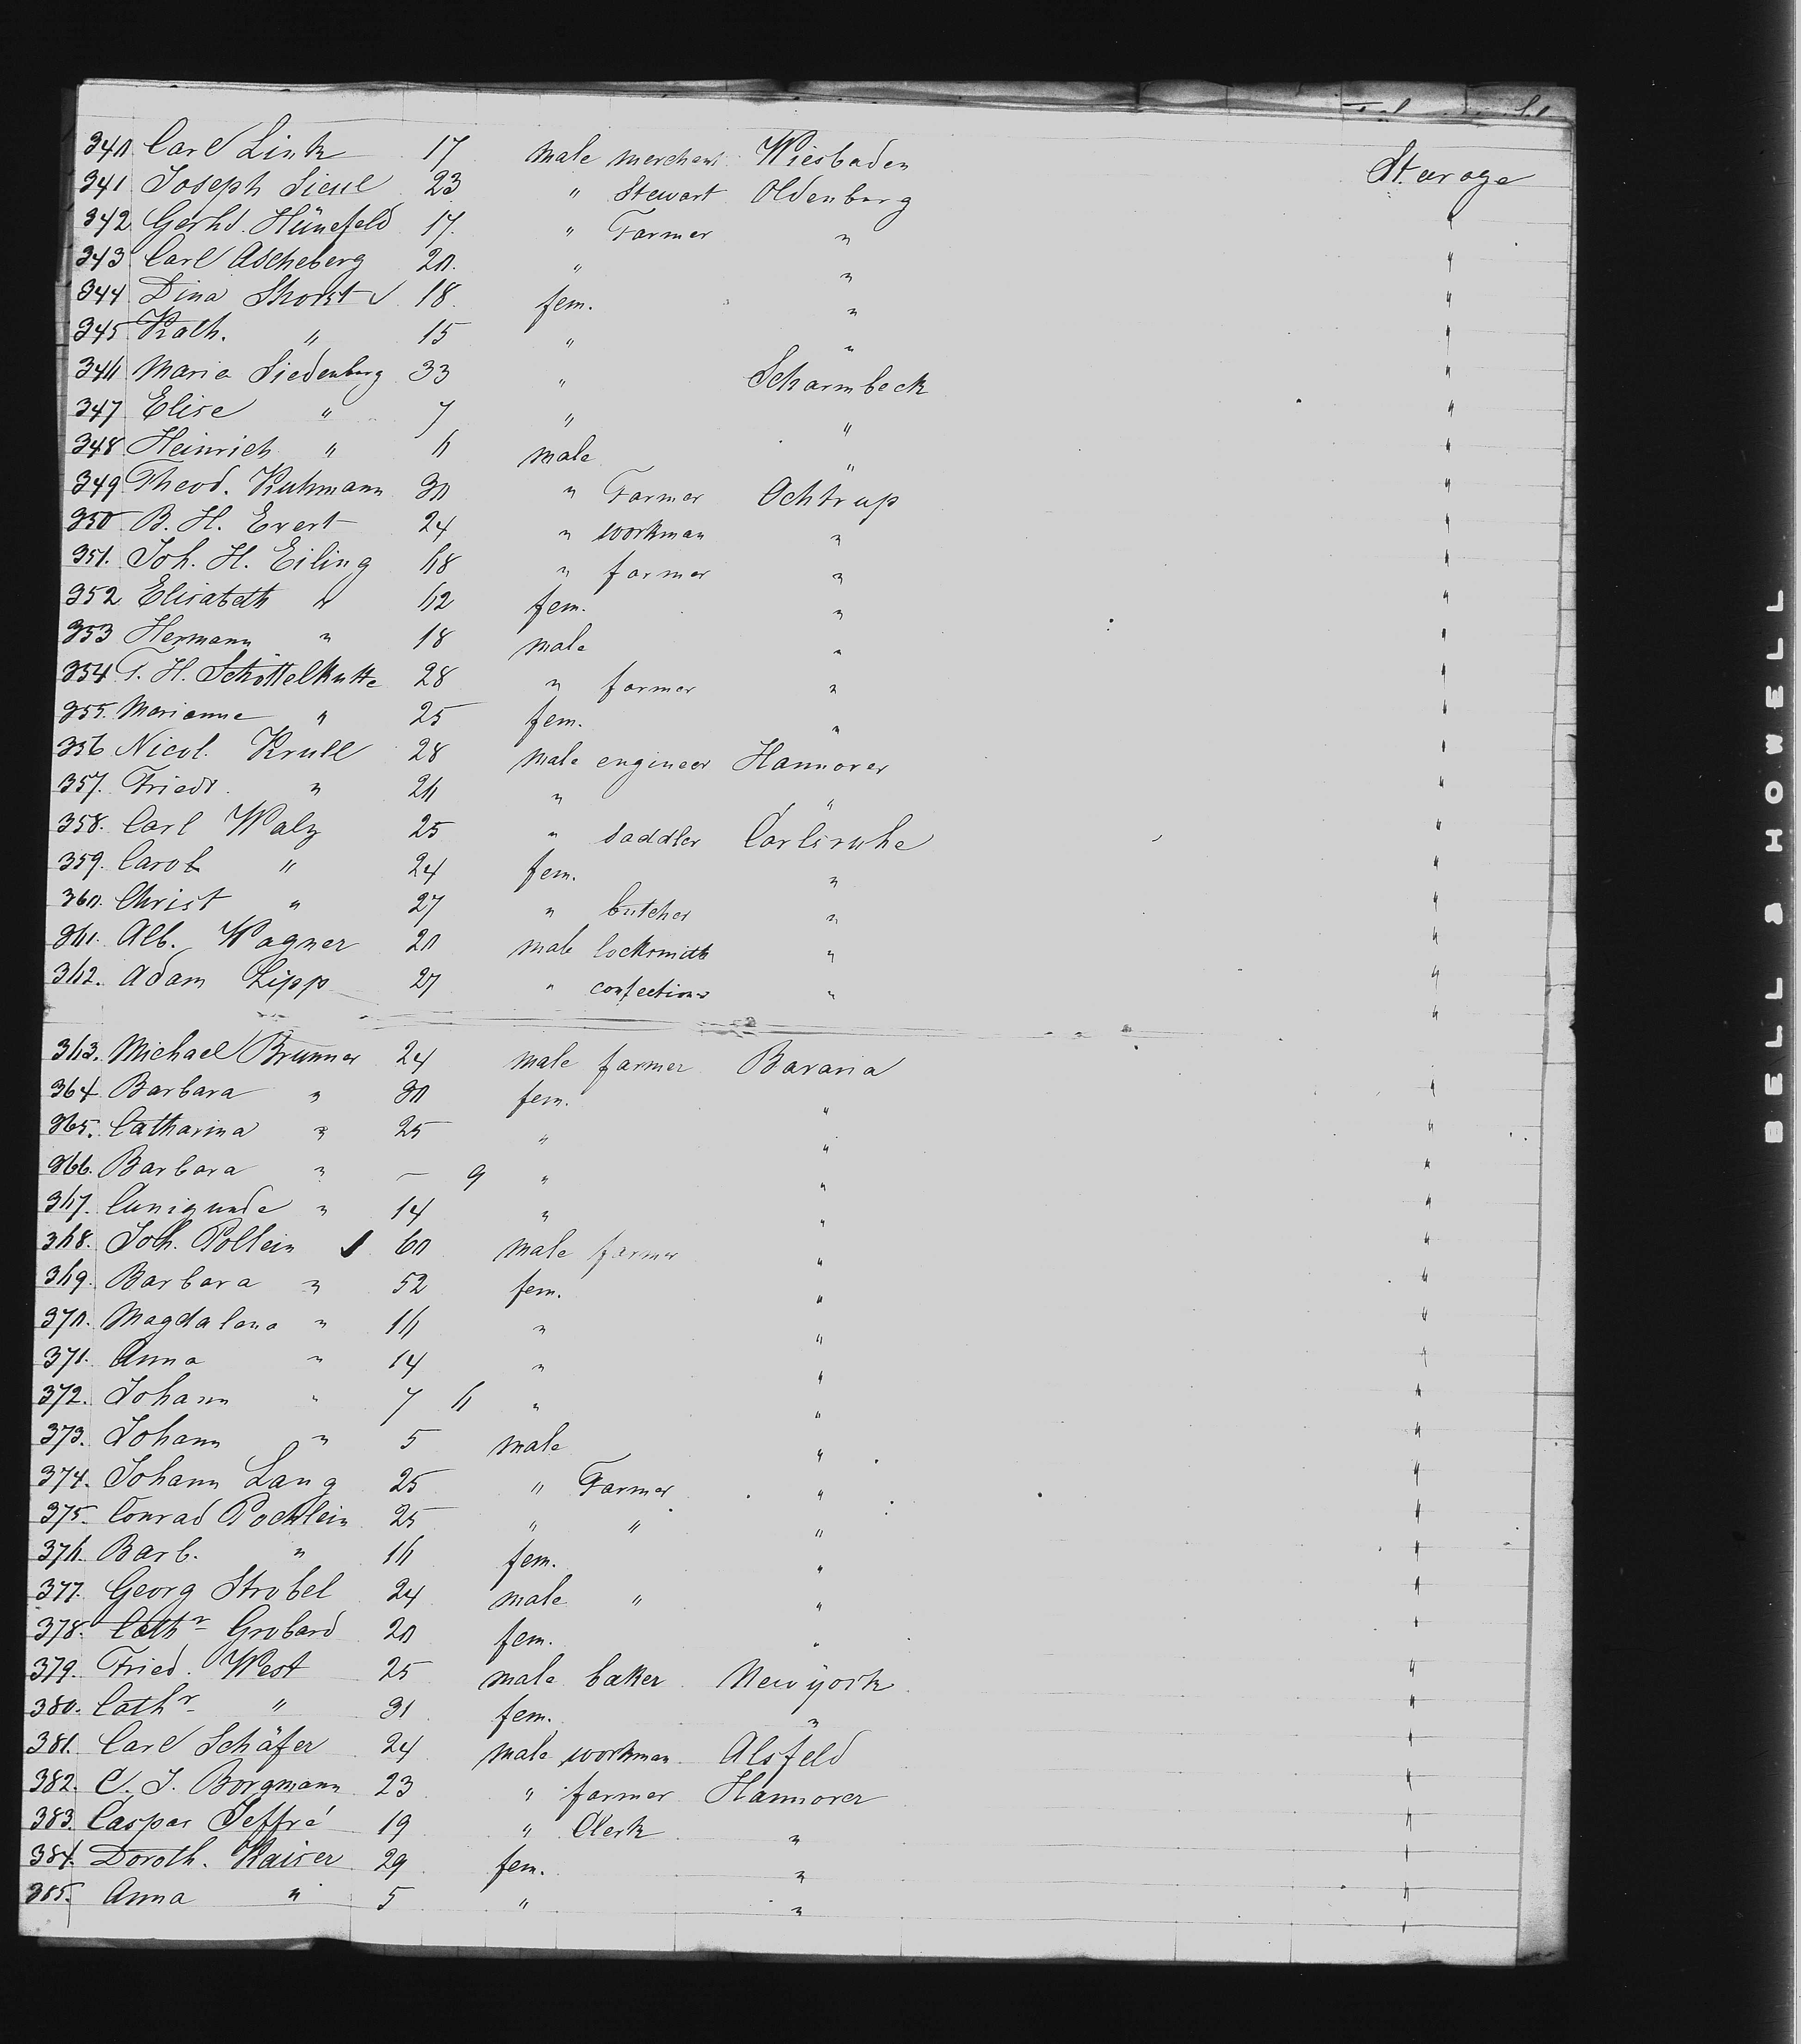 Steerage
340 Carl Link 17 male merchant Wiesbaden
341 Joseph Siesel 23 " Stewart Oldenburg "
342 Gerhd. Hünefeld 17. " Farmer " "
343 Carl Ascheberg 20. " " "
344 Dina Shorst 18. fem. " "
345 Kath. " 15 " " "
346 Maria Siedenburg 33 " Scharmbeck "
347 Elise " 7 " " "
348 Heinrich " 6 male " "
349 Theod. Kuhmann 30 " Farmer Ochtrup "
350 B. H. Evert 24 " workman " "
351. Joh. H. Eiling 68 " farmer " "
352 Elisabeth " 62 fem. " "
353 Hermann " 18 male " "
354 T. H. Schöttelkutte 28 " farmer " "
355. Marianne " 25 fem. " "
356 Nicol. Krull 28 male engineer Hannover "
357. Friedr. " 26 " " "
358. Carl Walz 25 " saddler Carlsruhe "
359. Carol " 24 fem. " "
360. Christ " 27 " butcher " "
361. Alb. Wagner 20 male locksmith " "
362. Adam Lipp 27 " confectionr " "
363. Michael Brunner 24 male farmer Bavaria
364. Barbara " 30 fem. " "
365. Catharina " 25 " " "
366. Barbara " — 9 " " "
367. Cunigunde " 14 " " "
368. Joh. Pollein 60 male farmer " "
369. Barbara " 52 fem. " "
370. Magdalena " 16 " " "
371. Anna " 14 " " "
372. Johann " 7 6 " " "
373. Johann " 5 male " "
374. Johann Lang 25 " Farmer " "
375. Conrad Pochlein 25 " " " "
376. Barb. " 16 fem. " "
377. Georg Strobel 24 male " " "
378. Cathr Grobard 20 fem. " "
379. Fried. West 25 male baker Newyork "
380. Cathr " 31 fem. " "
381. Carl Schäfer 24 male workman Alsfeld "
382. C. J. Borgmann 23 " farmer Hannover "
383. Caspar Jeffré 19 " Clerk " "
384. Doroth. Kaiser 29 fem. " "
385. Anna " 5 " " "
BELL & HOWELL